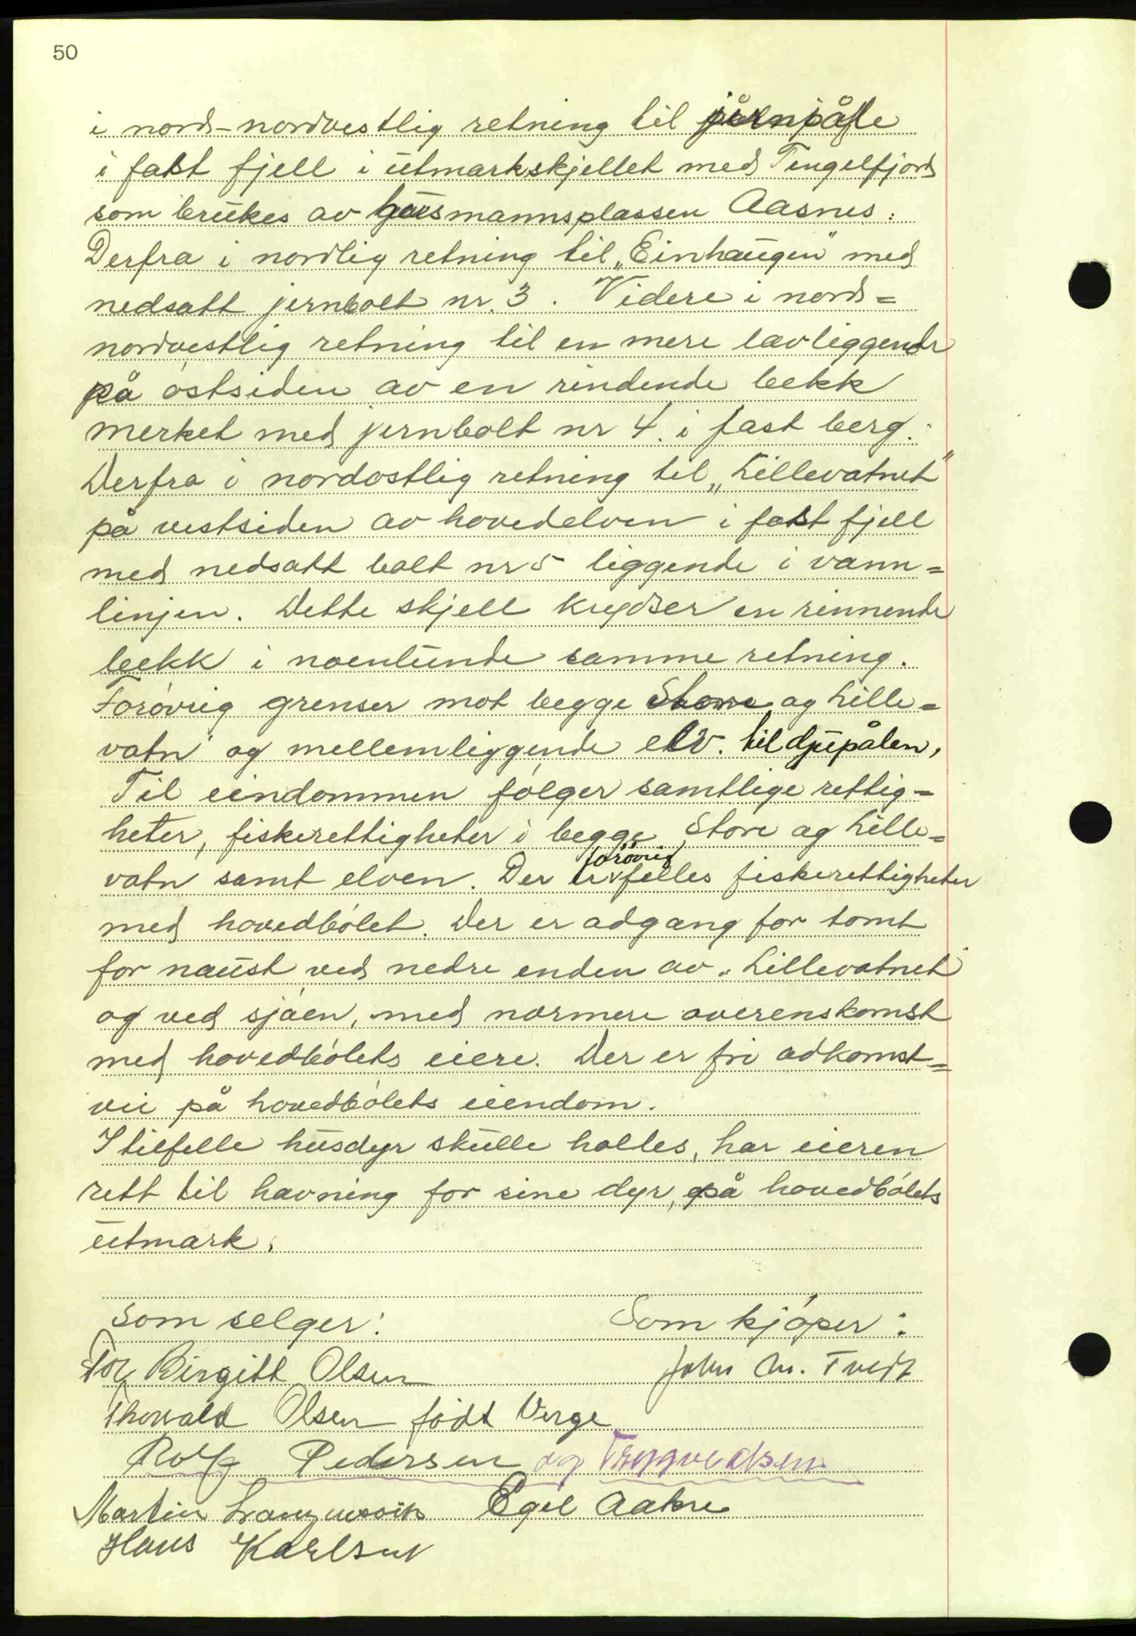 50
i nord-nordvestlig retning til jernpåle
i fast fjell i utmarkskjellet med Tengelfjord
som brukes av husmannsplassen Aasnes.
Derfra i nordlig retning til „Einhaugen" med
nedsatt jernbolt nr. 3. Videre i nord=
nordvestlig retning til en mere lavliggende
på østsiden av en rindende bekk
merket med jernbolt nr 4. i fast berg.
Derfra i nordostlig retning til „Lillevatnet"
på vestsiden av hovedelven i fast fjell
med nedsatt bolt nr 5 liggende i vann=
linjen. Dette skjell krydser en rinnende
bekk i noenlunde samme retning.
Forøvrig grenser mot begge Store og Lille=
vatn og mellemliggende elv. til djupålen,
Til eiendommen følger samtlige rettig=
heter, fiskerettigheter i begge Store og Lille=
vatn samt elven. Der er forøvrig felles fiskerettigheter
med hovedbølet. Der er adgang for tomt
for naust ved nedre enden av „Lillevatnet"
og ved sjøen, med nærmere overenskomst
med hovedbølets eiere. Der er fri adkomst=
vei på hovedbølets eiendom.
I tilfelle husdyr skulle holles, har eieren
rett til havning for sine dyr, på hovedbølets
utmark.
Som selger: Som kjøper:
for Birgitt Olsen John Chr. Tvedt
Thorvald Olsen født Verge
Rolf Pedersen og
Martin Egil Aakre
Hans Karlsen